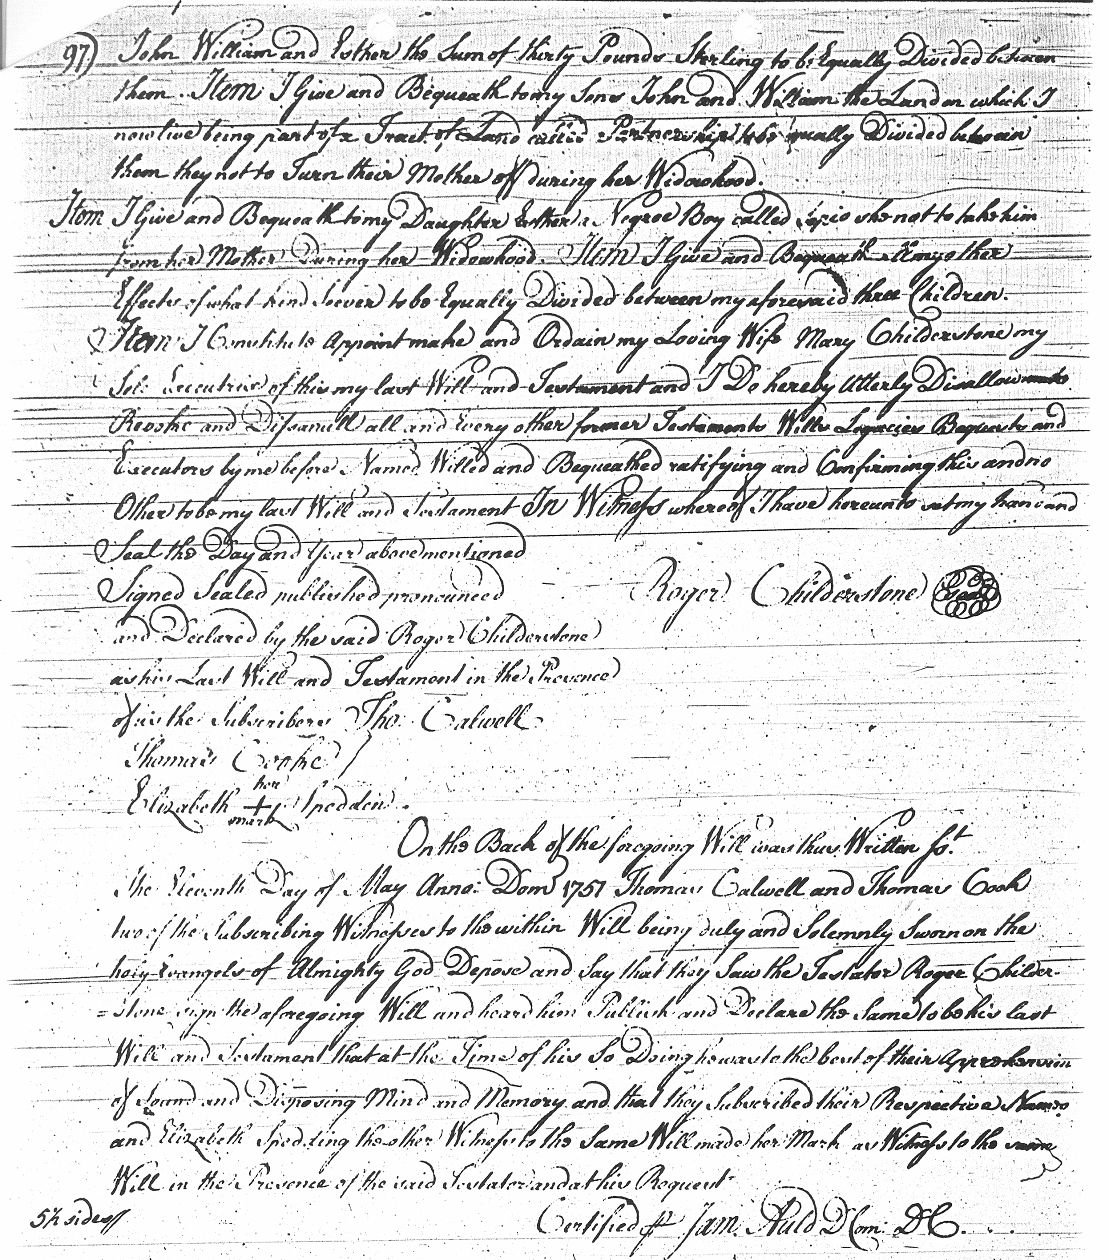 97) John William and Esther the Sum of thirty Pounds Sterling to be Equally Divided between
them. Item I Give and Bequeath to my Sons John and William the Land on which I
now live being part of a Tract of Land called Partnership to be equally Divided between
them they not to Turn their Mother off during her Widowhood.
Item I Give and Bequeath to my Daughter Esther a Negroe Boy called Scipio she not to take him
from her Mother During her Widowhood. Item I Give and Bequeath all my other
Effects of what kind soever to be Equally Divided between my aforesaid three Children.
Item I Constitute Appoint make and Ordain my Loving Wife Mary Childerstone my
Sole Executrix of this my last Will and Testament and I Do hereby Utterly Disallow
Revoke and Disannull all and Every other former Testaments Wills Legacies Bequests and
Executors by me before Named Willed and Bequeathed ratifying and Confirming this and no
Other to be my last Will and Testament In Witness whereof I have hereunto set my hand and
Seal the Day and Year above mentioned
Signed Sealed published pronounced Roger Childerstone Seal
and Declared by the said Roger Childerstone
as his Last Will and Testament in the Presence
of us the Subscribers Tho. Calwell
Thomas Cooke
Elizabeth her + mark Spedden.
On the Back of the foregoing Will was thus Written Sst.
The Eleventh Day of May Anno: Dom 1751 Thomas Calwell and Thomas Cook
two of the Subscribing Witnesses to the within Will being duly and Solemnly Sworn on the
holy Evangels of Almighty God Depose and Say that they Saw the Testator Roger Childer-
=stone sign the aforegoing Will and heard him Publish and Declare the Same to be his last
Will and Testament that at the Time of his So Doing he was to the best of their Apprehension
of Sound and Disposing Mind and Memory and that they Subscribed their Respective Names
and Elizabeth Spedding the other Witness to the Same Will made her Mark as Witness to the same
Will in the Presence of the said Testator and at his Request
5½ sides Certified p Jam. Auld D Com: DC.